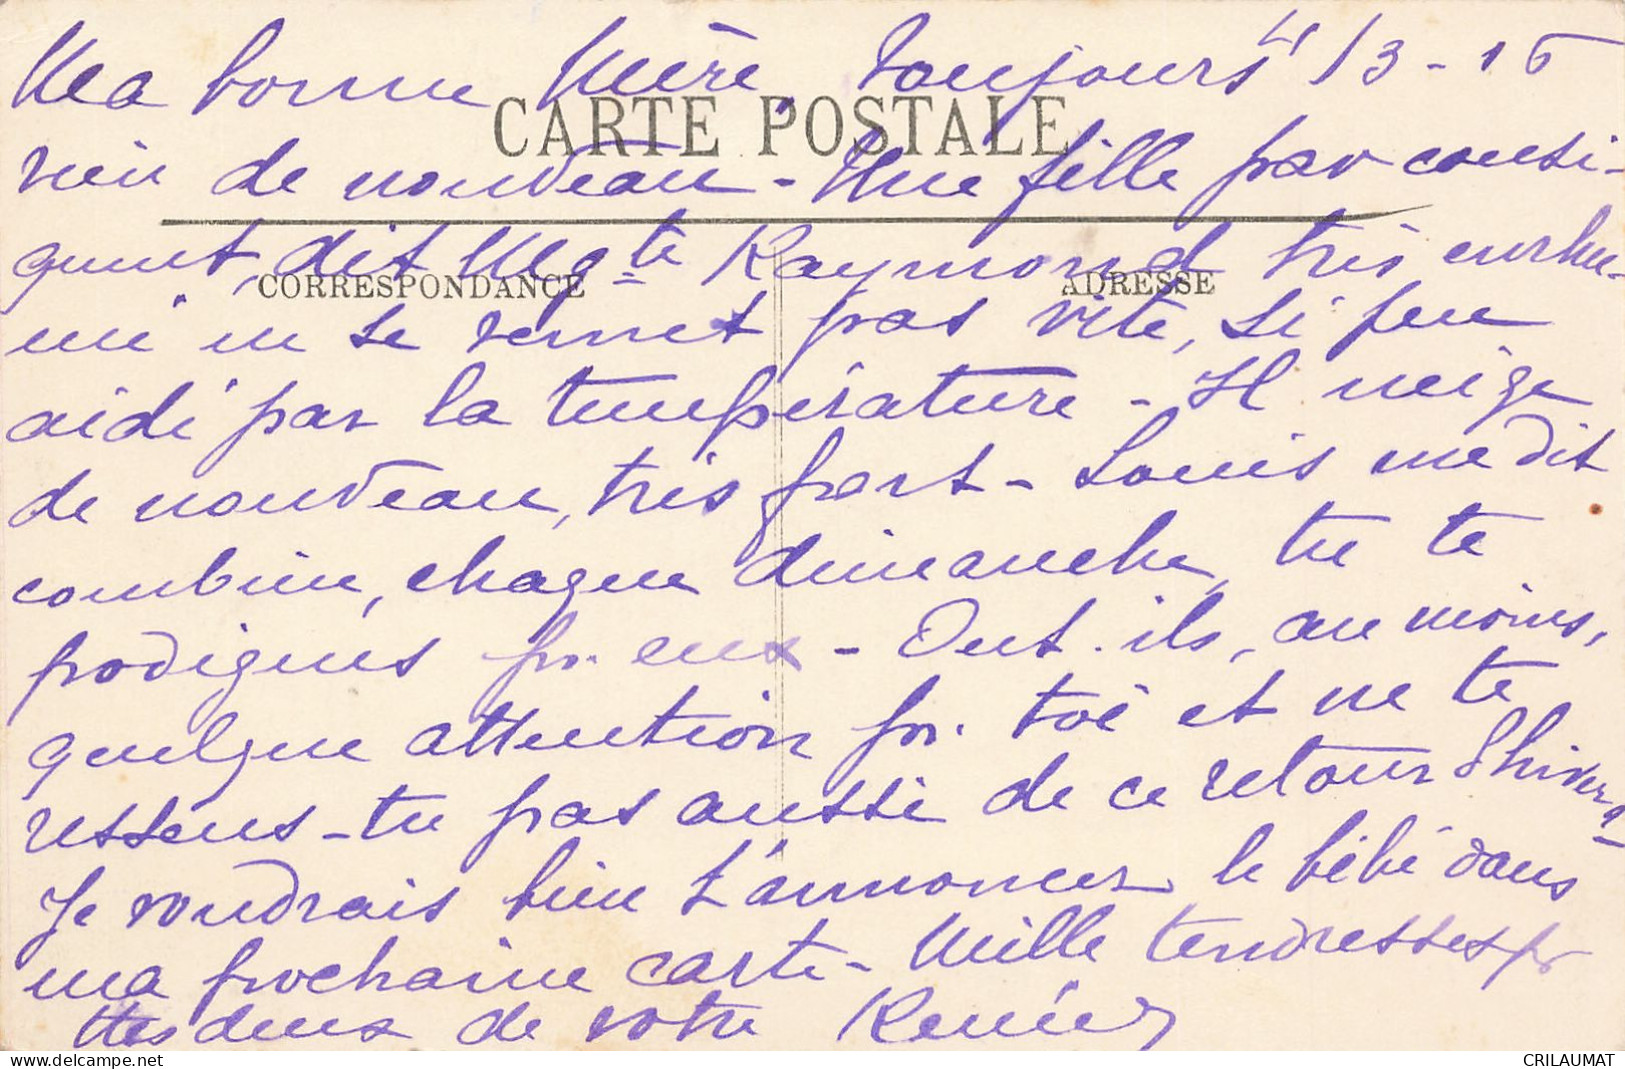 Ma bonne Mère, Toujours 11/3-16
CARTE POSTALE
rien de nouveau - Une fille par consé-
quent, dit Mgte Raymond très enrhu-
CORRESPONDANCE ADRESSE
mé ne se remet pas vite, si peu
aidé par la température - Il neige
de nouveau, très fort - Louis me dit
combien, chaque dimanche, tu te
prodigues pr. eux - Ont-ils, au moins,
quelque attention pr. toi et ne te
ressens-tu pas aussi de ce retour d'hiver ?
Je voudrais bien t'annoncer le bébé dans
ma prochaine carte - Mille tendresses pr
ttes deux de votre
CRILAUMAT
http://www.delcampe.net